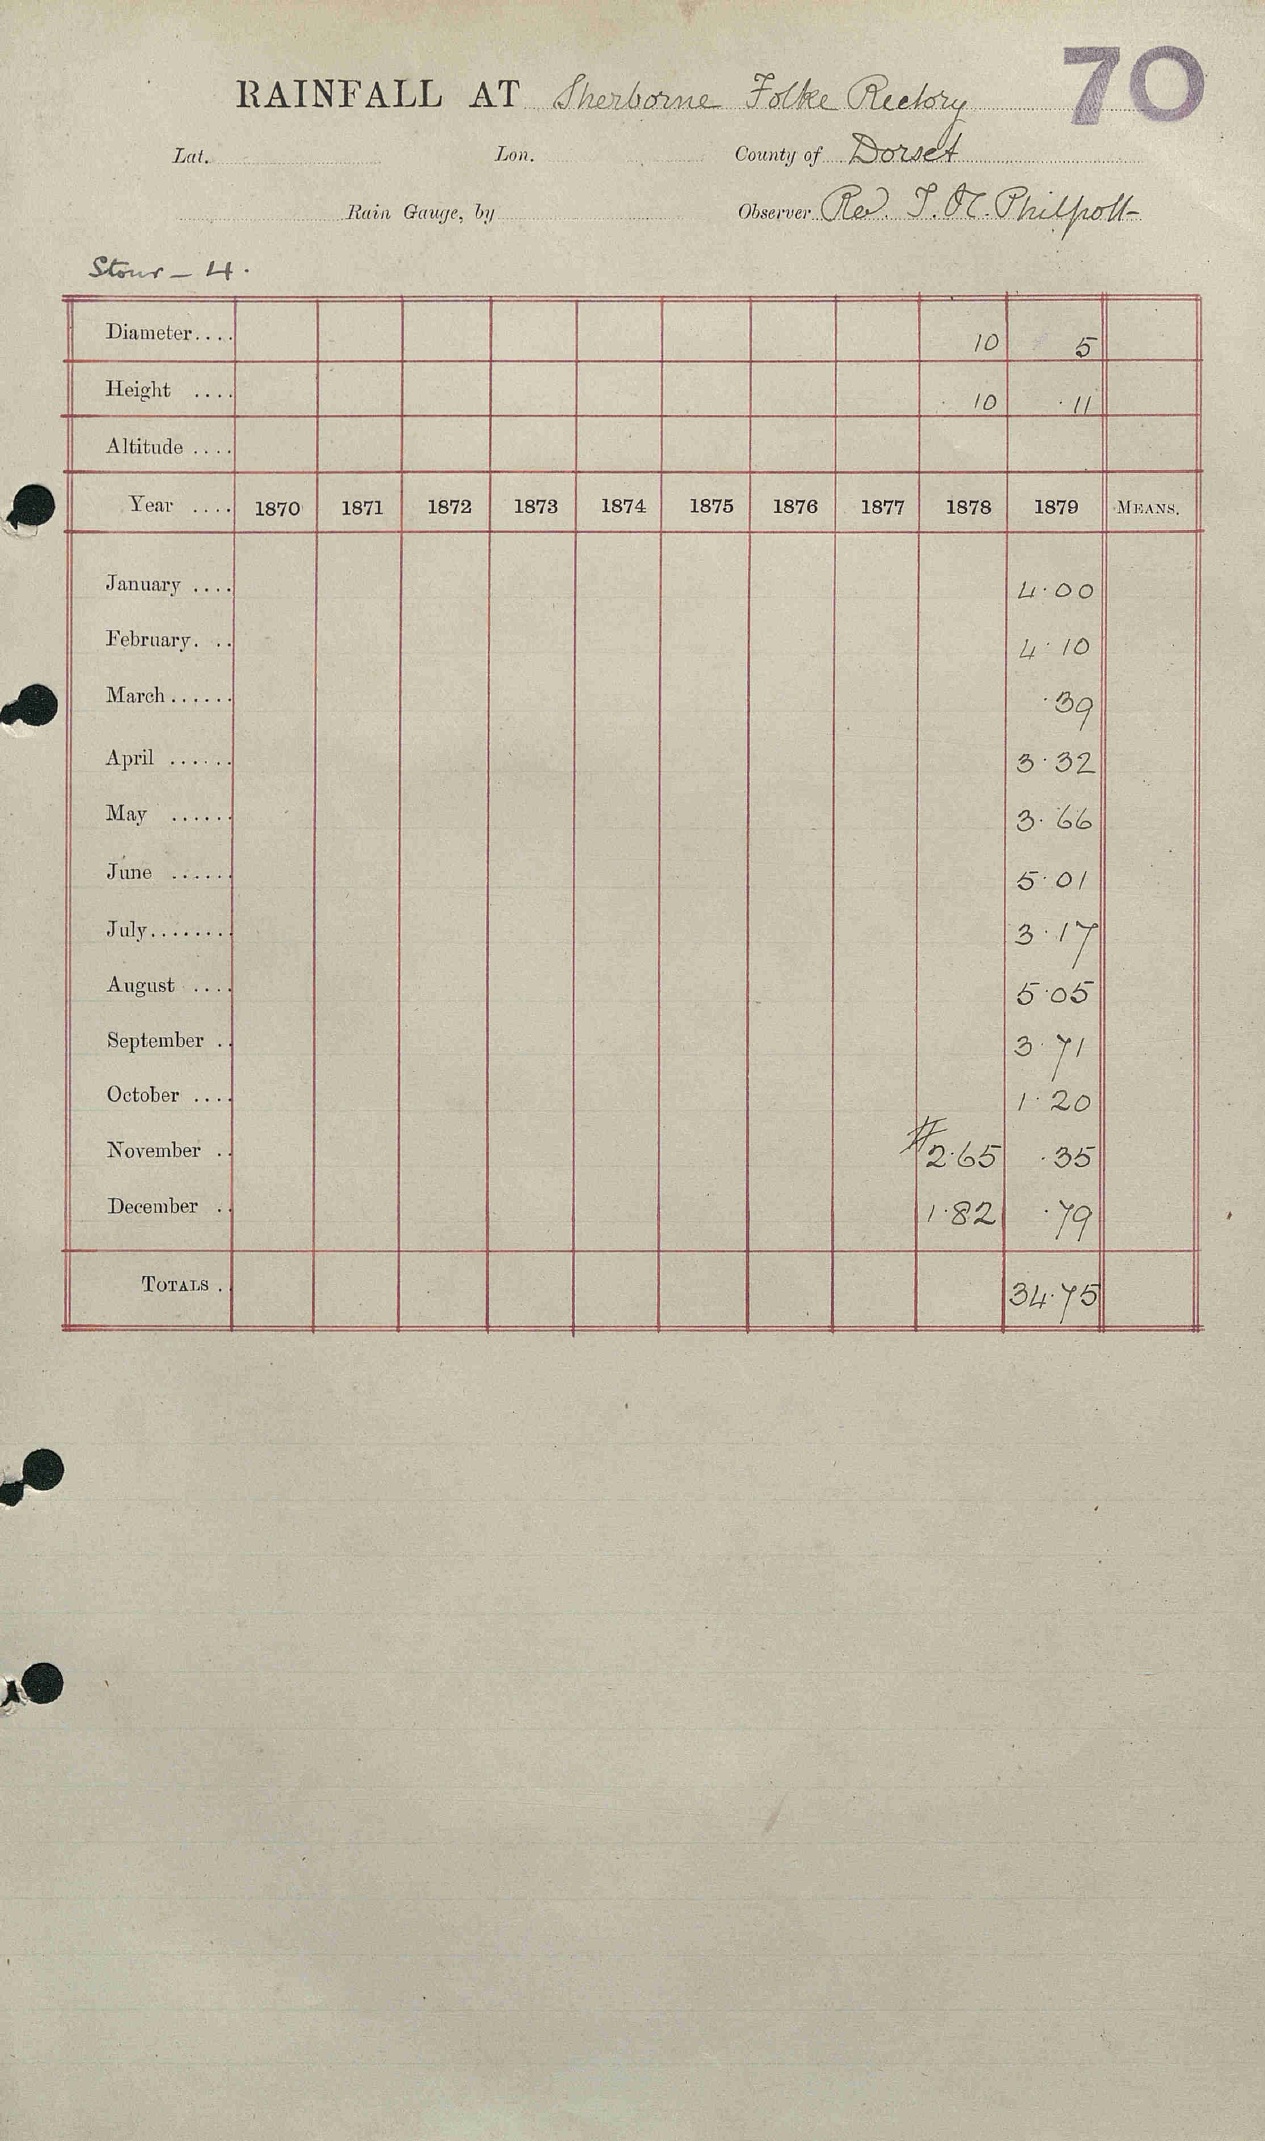 70
RAINFALL AT Sherborne Folke Rectory
Lat. Lon. County of Dorset
Rain Gauge, by Observer Rev. T. H. Philpott
Stour - 4.
Diameter.... 10 5
Height .... 10 11
Altitude ....
Year .... 1870 1871 1872 1873 1874 1875 1876 1877 1878 1879 MEANS.
January .... 4.00
February. .. 4.10
March...... .39
April ...... 3.32
May ...... 3.66
June ...... 5.01
July....... 3.17
August .... 5.05
September .. 3.71
October .... 1.20
November .. # 2.65 .35
December .. 1.82 .79
TOTALS . 34.75